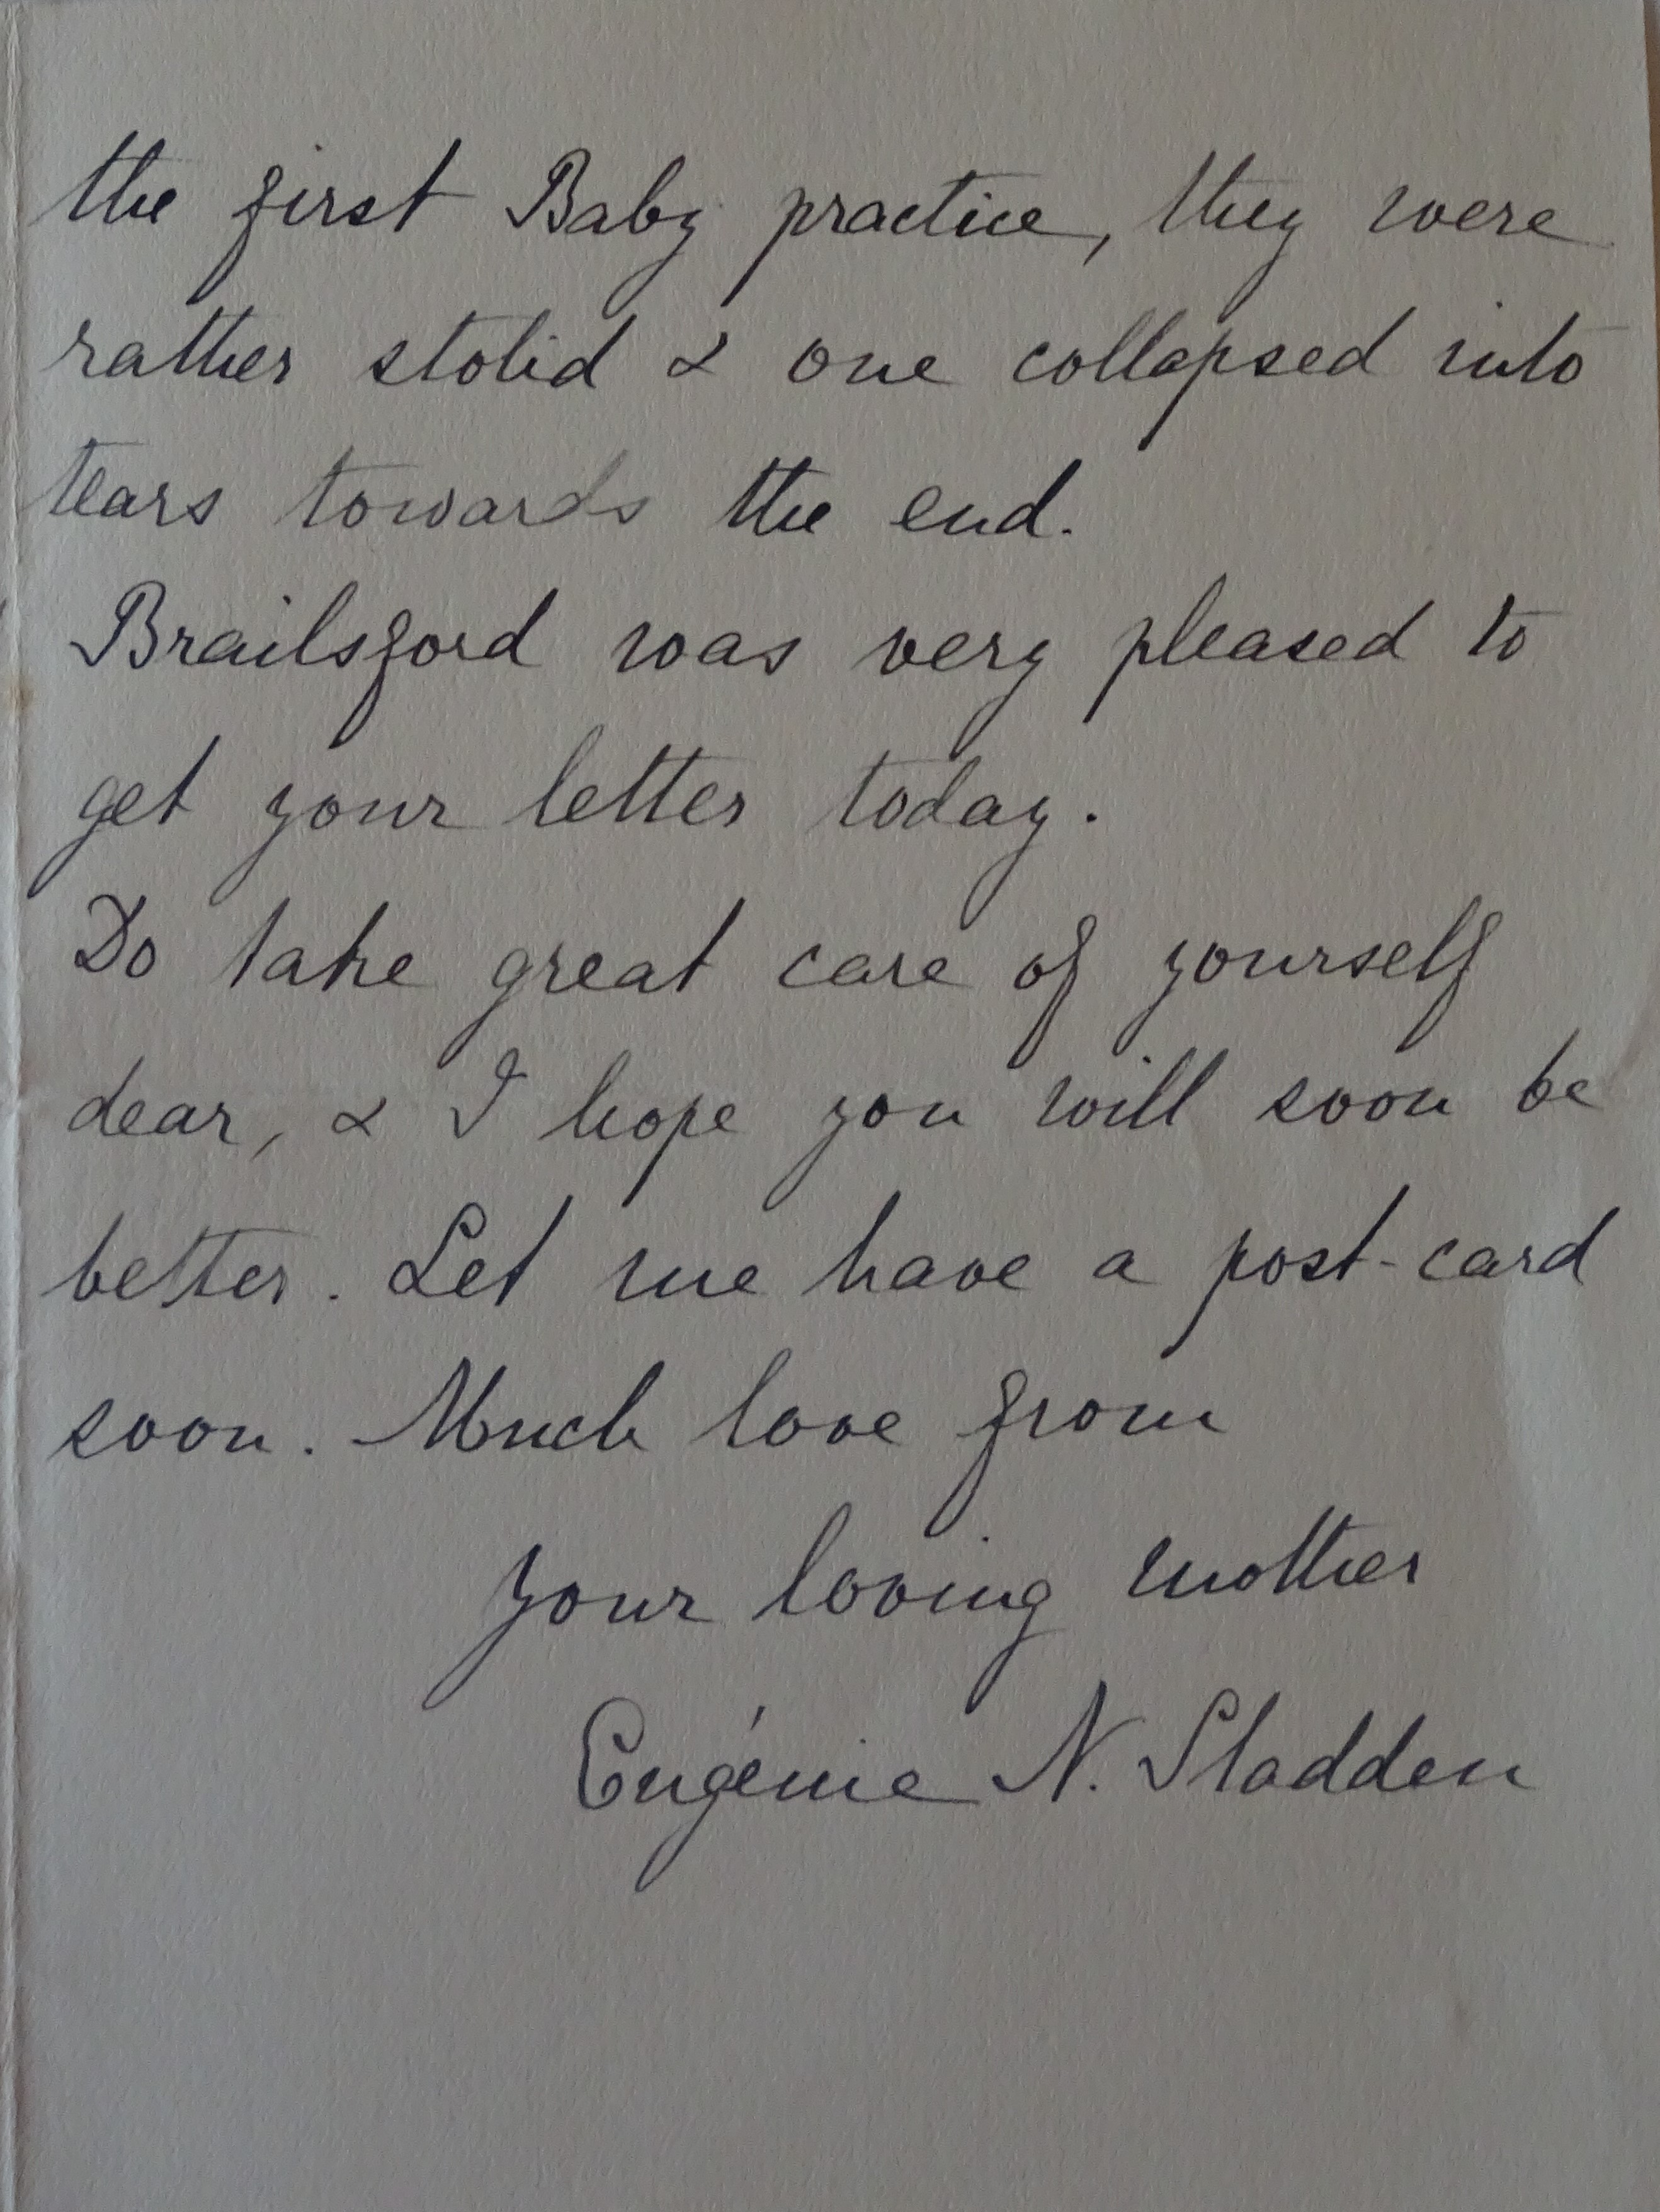 the first Baby practice, they were
rather stolid & one collapsed into
tears towards the end.
Brailsford was very pleased to
get your letter today.
Do take great care of yourself
dear, & I hope you will soon be
better. Let me have a post-card
soon. Much love from
your loving mother
Eugénie N. Sladden